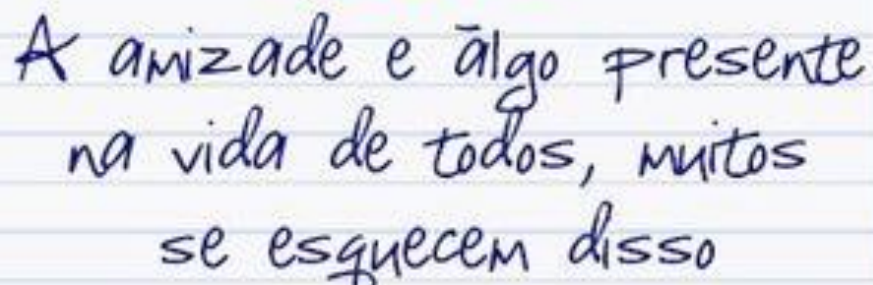 A amizade e āIgo presente
na vida de todos, muitos
se esquecem disso